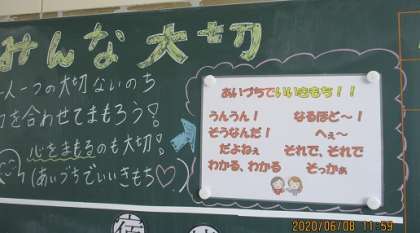 みんな大切
一人一つの大切ないのち
力を合わせてまもろう!
心をまもるのも大切!
(あいづちでいいきもち♡)
あいづちでいいきもち!!
うんうん! なるほど~!
そうなんだ! へぇ~
だよねぇ それで、それで
わかる、わかる そっかぁ
2020/06/08 11:59